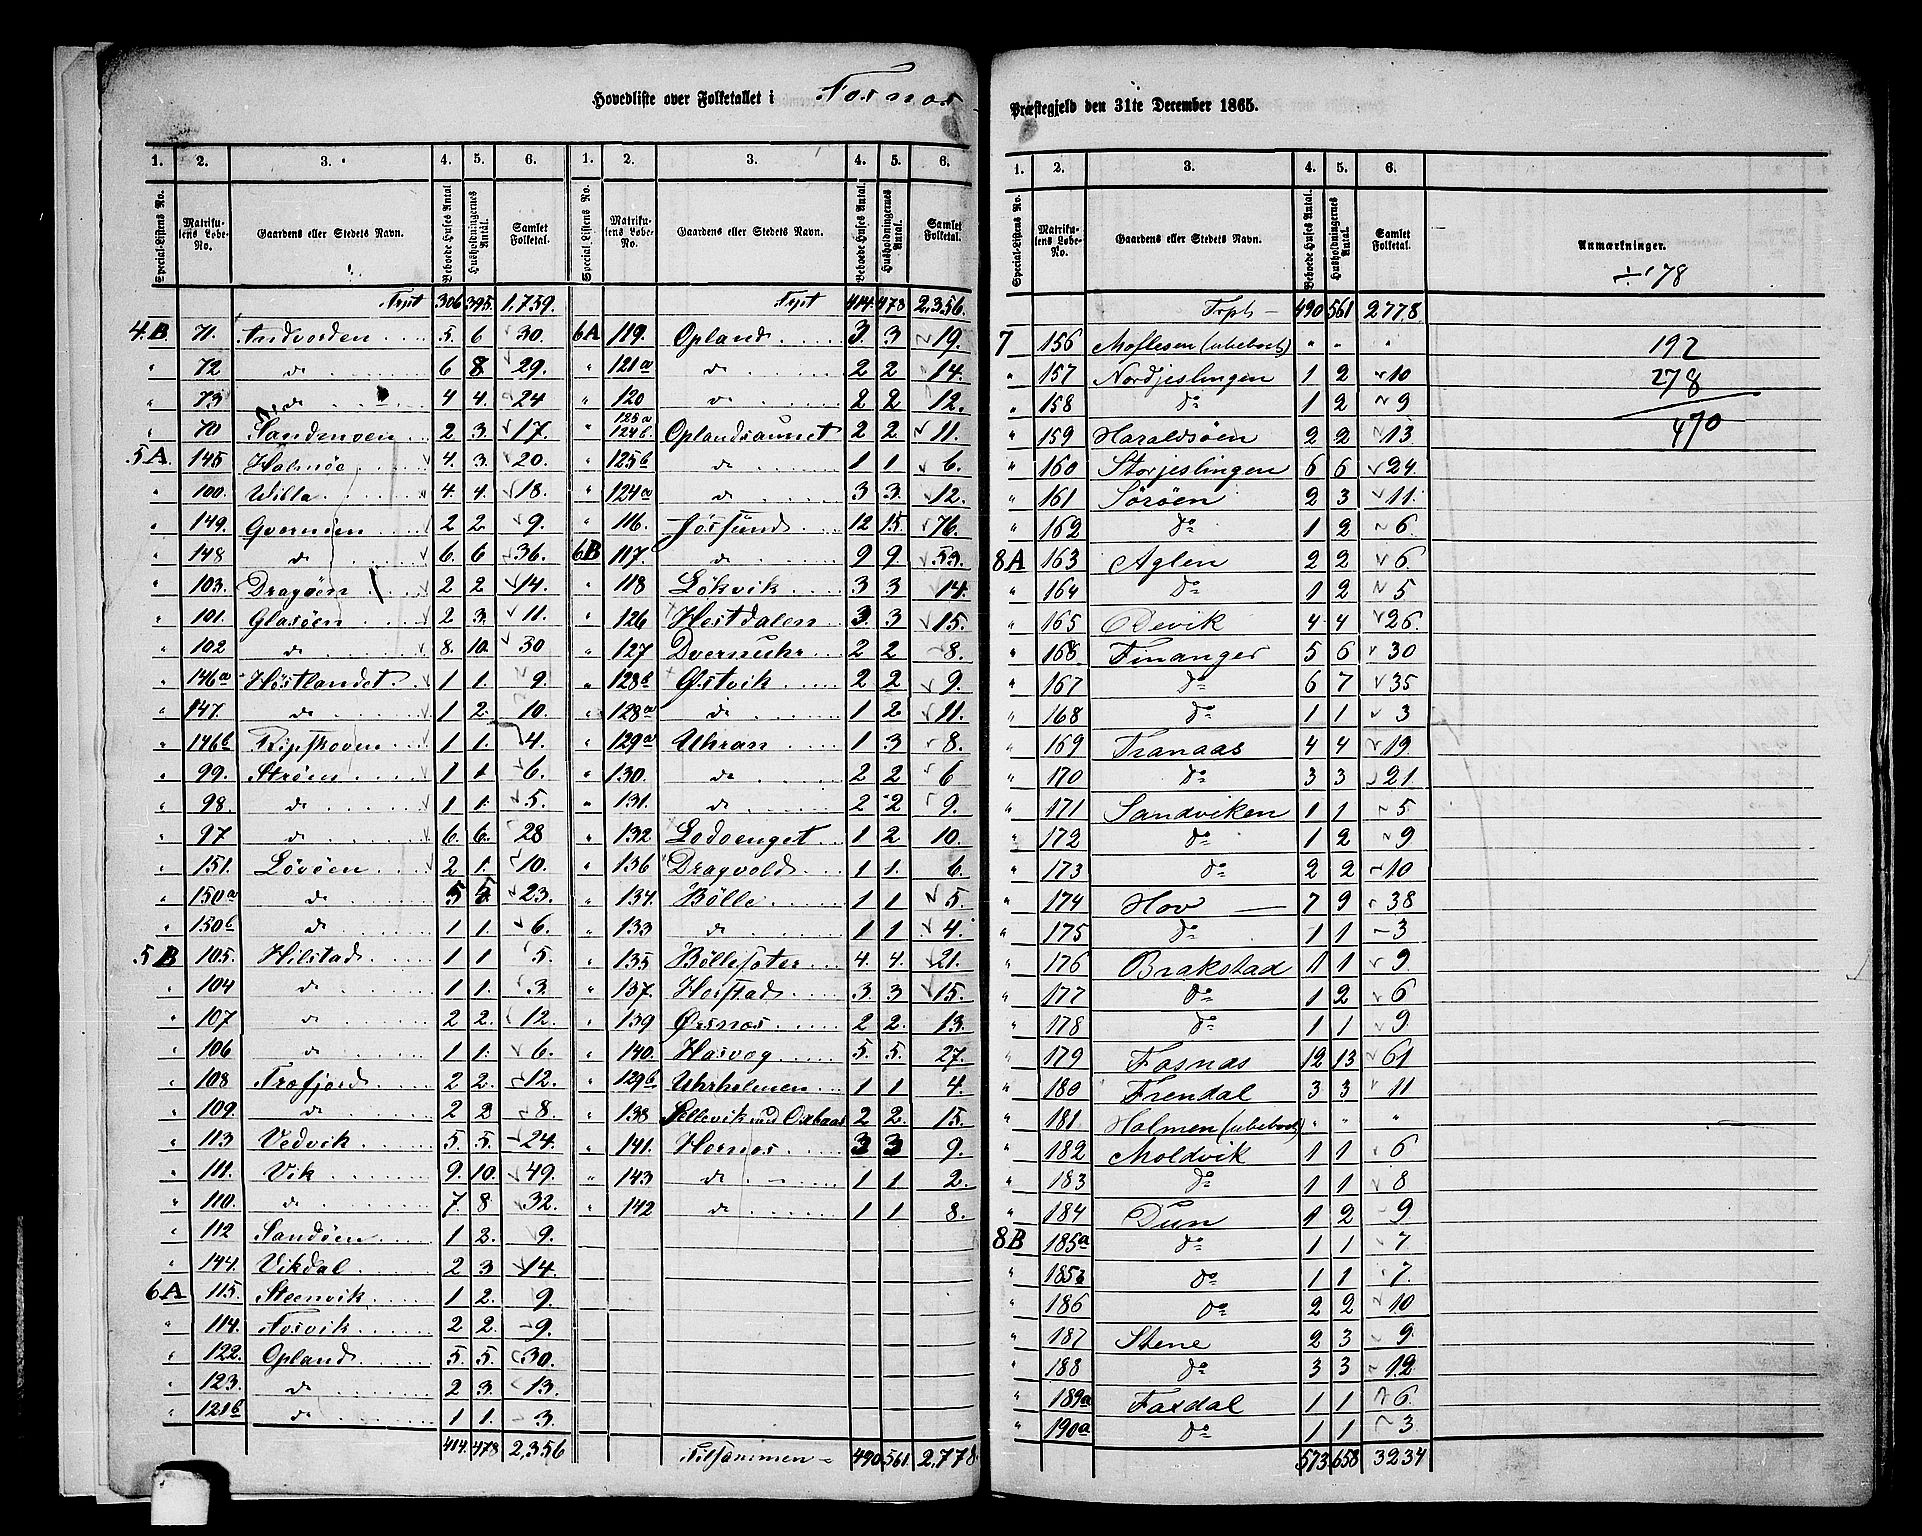 Hovedliste over Folketallet i Fosnæs
1. 2. 3. 4. 5. 6.
Special-Listens No. Matrikulens Løbe-No. Gaardens eller Stedets Navn. Beboede Huses Antal Husholdningernes Antal. Samlet Folketal.
306 395 1,759.
4.B 71. 5. 6 30.
" 72 do 6 8 29.
" 73 do 4 4. 24
" 70 Sandmoen 2 3. 17.
5A. 145 Halmøe 4. 3. 20.
" 100. Willa 4. 4. 18.
" 149. 2 2. 9.
" 148 do 6. 6 36.
" 103. Dragøen 2 2 14.
" 101. Glasøen 2 3. 11.
" 102 do 8. 10. 30
" 146a Høstlandet 1 1. 9.
" 147. do 1 2. 10.
" 146b 1 1. 4.
" 99. Strøm 1 1. 6.
" 98. do 1 1. 5.
" 97 do 6. 6. 28
" 151. Løvøen 2 1. 10.
" 150a do 5 5. 23.
" 150b do 1 1. 6.
5B 105. Hilstad 1 1 5.
" 104 do 1 1. 3.
" 107 do 2 2. 12.
" 106 do 1 1. 6.
" 108 Træfjord 2 2. 12.
" 109. do 2 2 8.
" 113 Vedvik 5. 5. 24.
" 111. Vik 9. 10. 49.
" 110. do 7. 8 32.
" 112 Sandøen 1 2. 9.
" 144. Vikdal 2 3 14.
6A 115. Steenvik 1 2. 9.
" 114. Fosvik 2 2. 9.
" 122. Opland 5. 5. 30.
" 123. do 2 3. 13.
" 121b do 1 1. 3.
414. 478 2,356
1. 2. 3. 4. 5. 6.
Special Listens No. Matrikulens Løbe-No. Gaardens eller Stedets Navn. Beboede Huses Antal. Husholdningernes Antal. Samlet Folketal.
414. 478 2,356.
6A 119. Opland 3 3 19.
" 121a do 2 2 14.
" 120 do 2 2 12.
" 124b Oplandsaunet 2 2. 11.
" 125b do 1 1 6.
" 124a do 3 3. 12.
" 116. Jøssund 12 15. 76.
6B 117. do 9 9. 53.
" 118 Løkvik 3 3 14.
" 126 Hestdalen 3. 3 15.
" 127 2 2 8.
" 128b Østvik 2 2 9.
" 128a do 1 2 11.
" 129a Uhran 1 3 8.
" 130. do 2 2 6
" 131. do 2 2 9.
" 132 Lodoenget 1 2 10.
" 136 Dragvold 1 1. 6.
" 134. Bølle 1 1 5.
" 133 do 1 1 4.
" 135 Bølleseter 4. 4. 21.
" 137. Horstad 3. 3 15.
" 139 Ørsnæs 2 2. 13.
" 140. Hasvåg 5. 5. 27.
" 129b Uhrholmen 1 1 4.
" 138 Sellevik med Oxbaas 2 2. 15.
" 141. Hornæs 3 3 9.
" 143 do 1 1 2.
" 142 do 1 1 8.
Tilsammen 490 561. 2,778
Præstegjeld den 31te December 1865.
1. 2. 3. 4. 5. 6.
Special-Listens No. Matrikulens Løbe-No. Gaardens eller Stedets Navn. Beboede Huses Antal. Husholdningernes Antal. Samlet Folketal. Anmærkninger.
÷ 178
490 561 2778.
7 156 (ubeboet) " " "
192
" 157 Nordjeslingen 1 2 10
278
" 158 do 1 2 9
470
" 159 Haraldsøen 2 2 13
" 160 Storjeslingen 6 6 24
" 161 Sørøen 2 3 11
" 162 do 1 2 6
8A 163 Aglen 2 2 6
" 164 do 1 2 5
" 165 Devik 4 4 26
" 166 Finanger 5 6 30
" 167 do 6 7 35
" 168 do 1 1 3
" 169 Tranaas 4 4 19
" 170 do 3 3 21
" 171 Sandviken 1 1 5
" 172 do 1 2 9
" 173 do 2 2 10
" 174 Hov 7 9 38
" 175 do 1 1 3
" 176 Brakstad 1 1 9
" 177 do 1 2 6
" 178 do 1 1 9
" 179 Fasnas 12 13 61
" 180 Frendal 3 3 11
" 181 Holmen (ubeboet) " " "
" 182 Moldvik 1 1 6
" 183 do 1 1 8
" 184 Dun 1 2 9
8B 185a do 1 1 7
" 185b do 1 1 7.
" 186 do 2 2 10
" 187 Stene 2 3 9.
" 188 do 3 3 12
" 189a Faxdal 1 1 6
" 190a do 1 1 3
573 658 3234